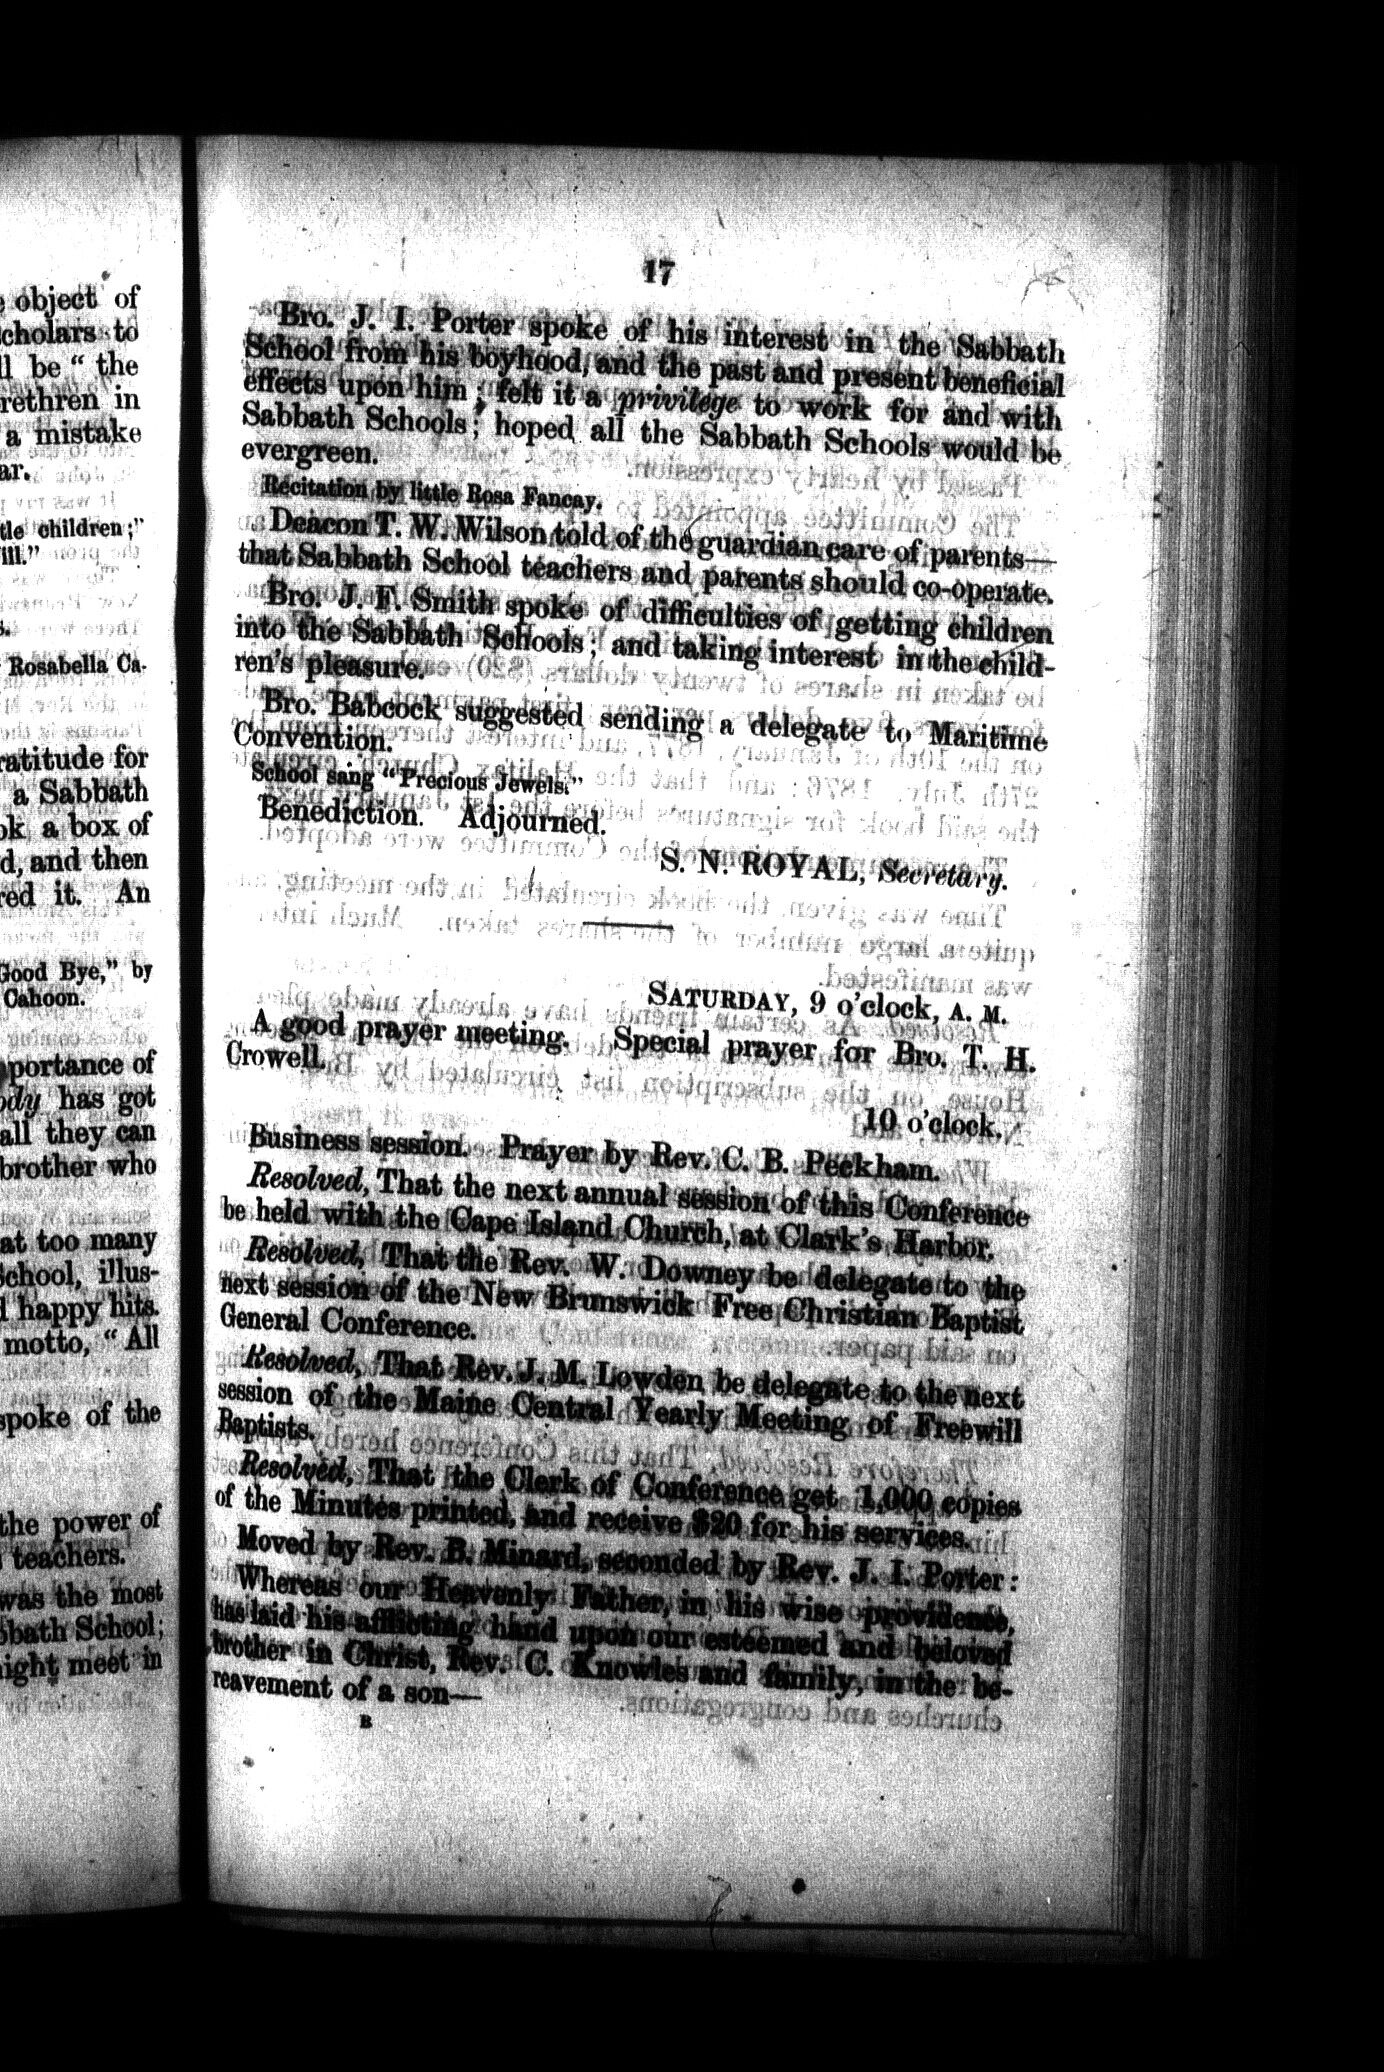 object of
cholars to
ll be “ the
rethren in
a mistake
ar.
tle children;”
ill.”
s.
Rosabella Ca-
ratitude for
a Sabbath
ok a box of
d, and then
red it. An
Good Bye,” by
Cahoon.
portance of
ody has got
all they can
brother who
at too many
School, illus-
d happy hits.
motto, “ All
spoke of the
the power of
teachers.
was the most
bbath School;
night meet in
17
Bro. J. I. Porter spoke of his interest in the Sabbath
School from his boyhood, and the past and present beneficial
effects upon him ; felt it a privilege to work for and with
Sabbath Schools ; hoped all the Sabbath Schools would be
evergreen.
Recitation by little Rosa Fancay.
Deacon T. W. Wilson told of the guardian care of parents—
that Sabbath School teachers and parents should co-operate.
Bro. J. F. Smith spoke of difficulties of getting children
into the Sabbath Schools ; and taking interest in the child-
ren’s pleasure.
Bro. Babcock suggested sending a delegate to Maritime
Convention.
School sang “Precious Jewels.”
Benediction. Adjourned.
S. N. ROYAL, Secretary.
SATURDAY, 9 o’clock, A. M.
A good prayer meeting. Special prayer for Bro. T. H.
Crowell.
10 o’clock.
Business session. Prayer by Rev. C. B. Peckham.
Resolved, That the next annual session of this Conference
be held with the Cape Island Church, at Clark’s Harbor.
Resolved, That the Rev. W. Downey be delegate to the
next session of the New Brunswick Free Christian Baptist
General Conference.
Resolved, That Rev. J. M. Lowden be delegate to the next
session of the Maine Central Yearly Meeting of Freewill
Baptists.
Resolved, That the Clerk of Conference get 1,000 copies
of the Minutes printed, and receive $20 for his services.
Moved by Rev. B. Minard, seconded by Rev. J. I. Porter :
Whereas our Heavenly Father, in his wise providence,
has laid his afflicting hand upon our esteemed and beloved
brother in Christ, Rev. C. Knowles and family, in the be-
reavement of a son—
B